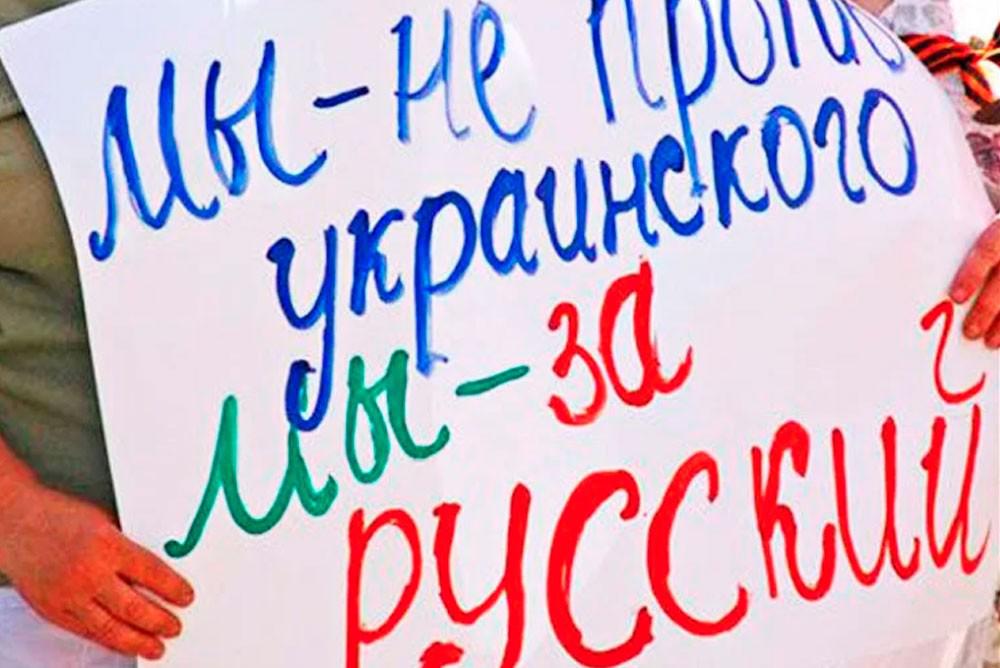 Мы - не проти
украинского
Мы - за
РУССКИЙ